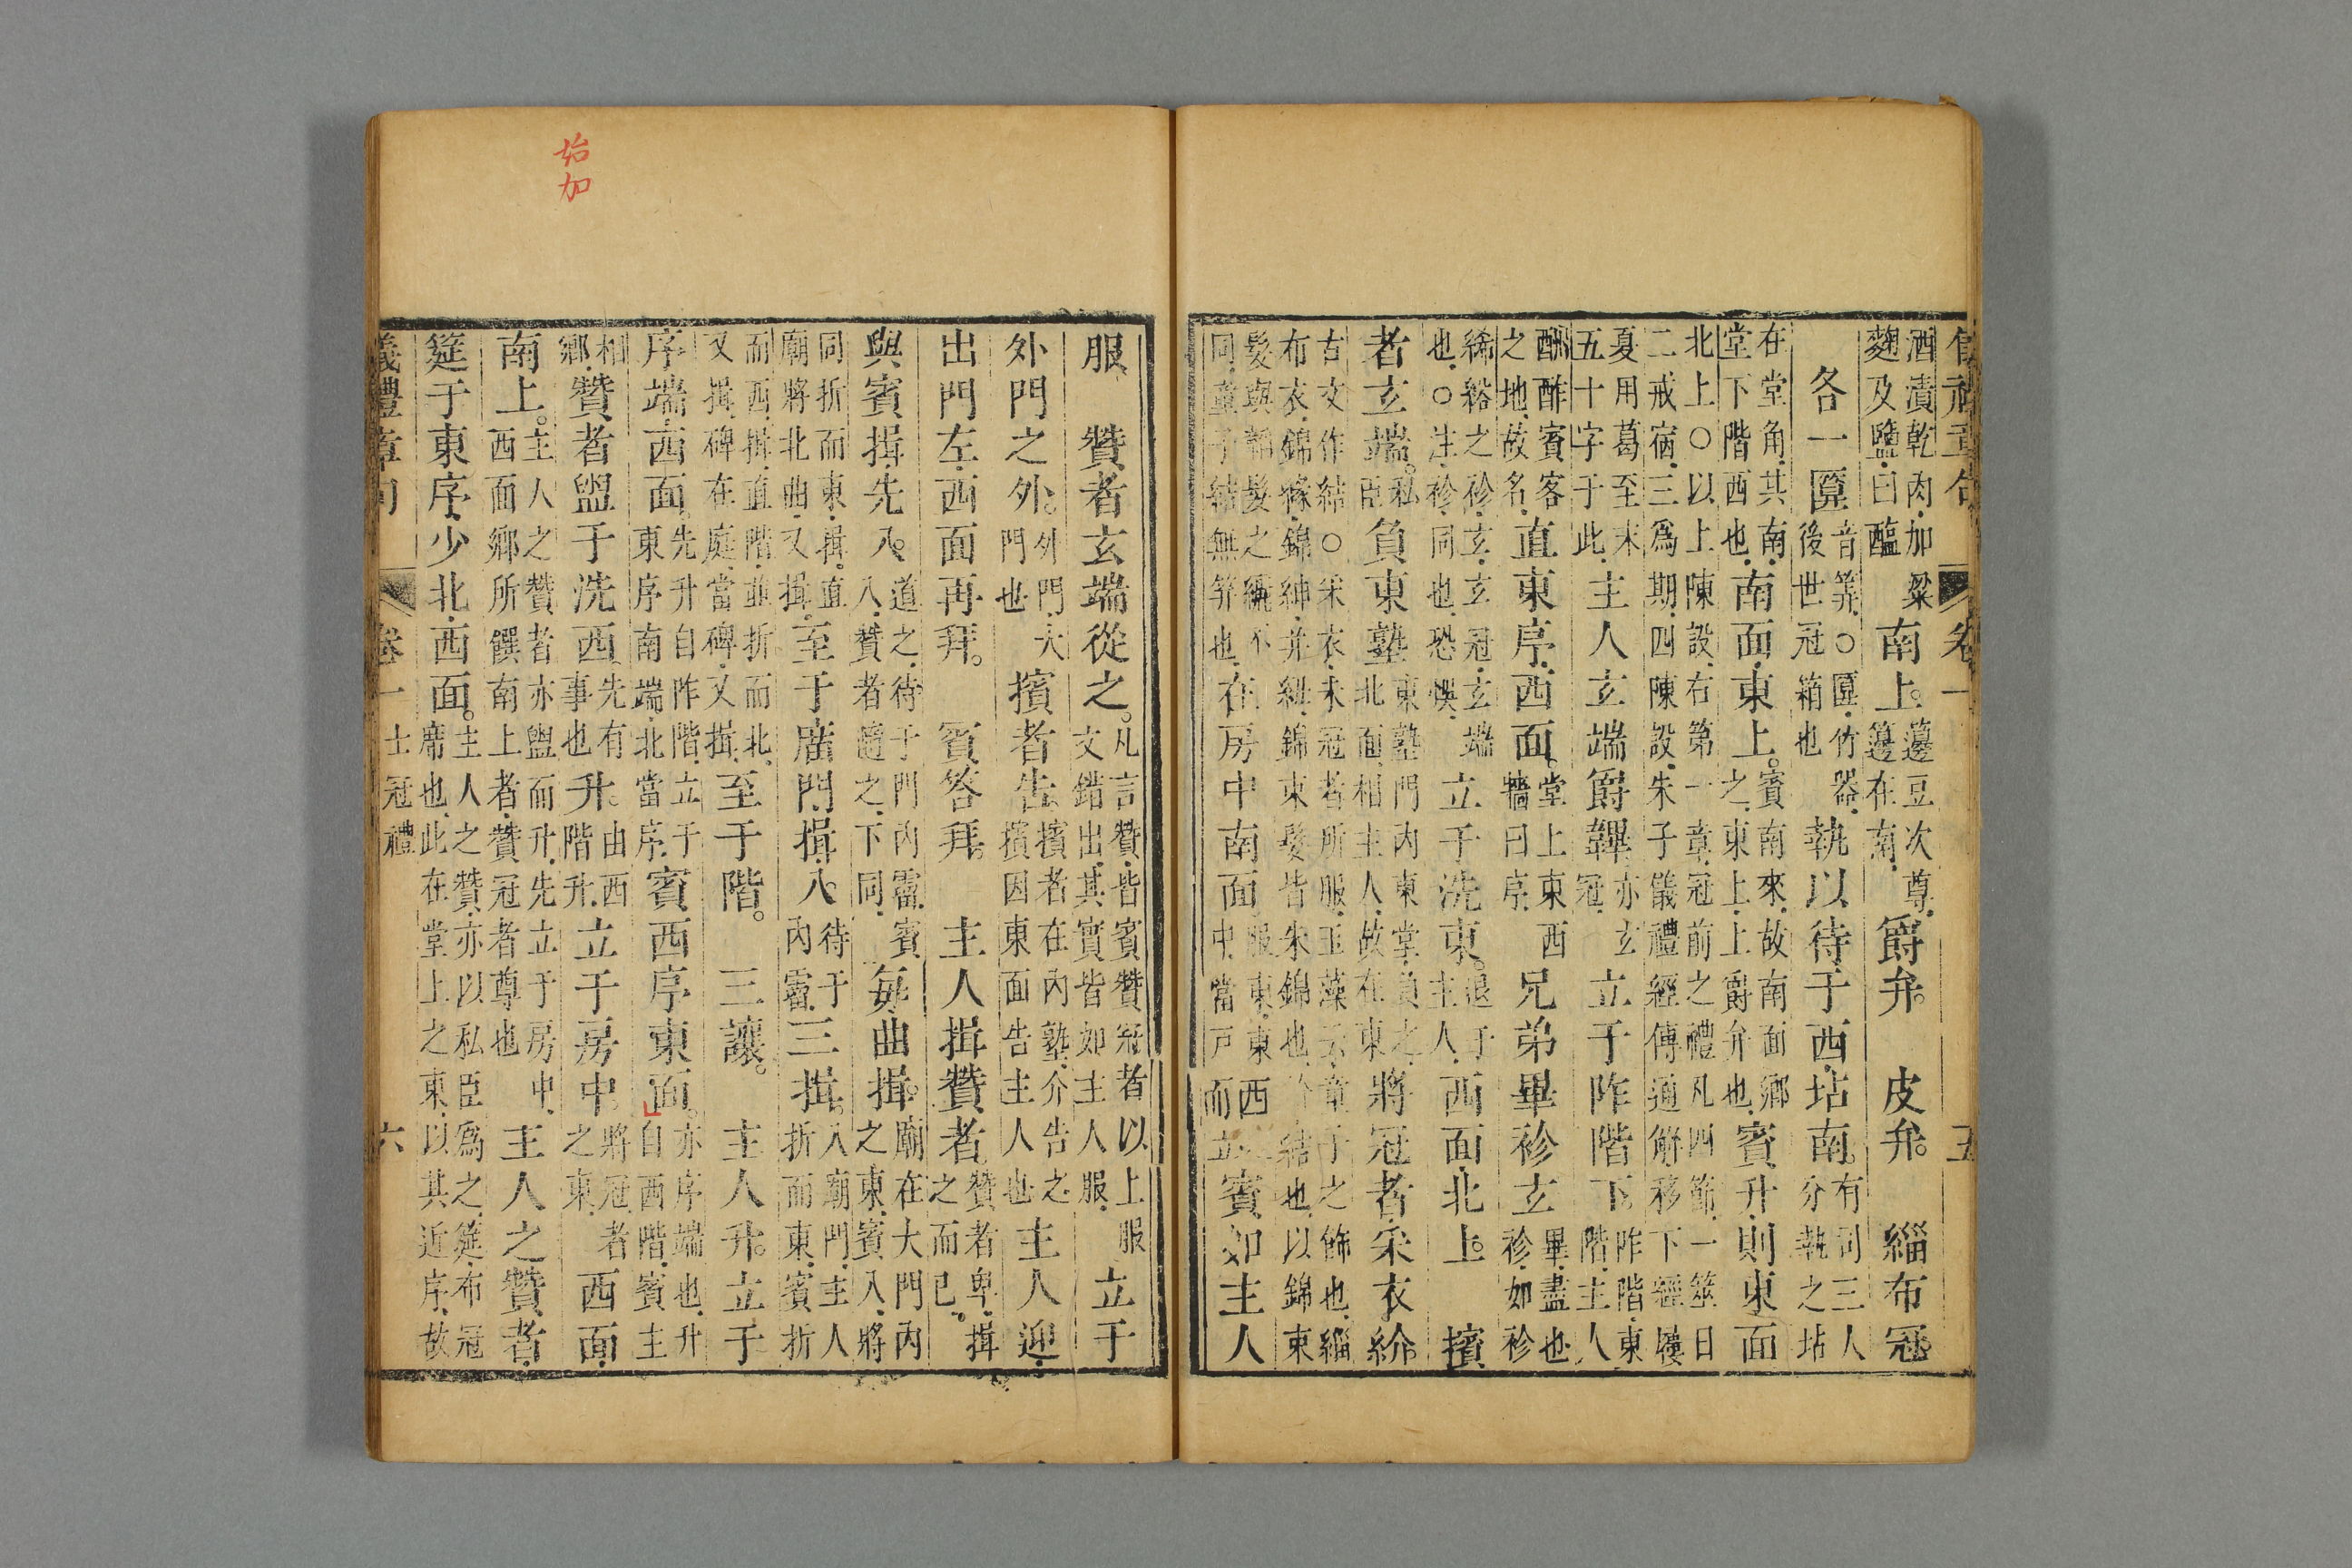 儀禮章句 卷一 五
酒漬乾肉加粱麴及鹽曰醢南上。籩豆次尊籩在南爵弁。皮弁。緇布冠
各一匴音筭○匴竹器後世冠箱也執以待于西坫南。有司三人分執之坫
在堂角其南堂下階西也南面東上。賓南來故南面鄉之東上上爵弁也賓升則東面
北上○以上陳設右第一章冠前之禮凡四節一筮日二戒宿三為期四陳設朱子儀禮經傳通解移下經屨
夏用葛至末五十字于此主人玄端爵韠亦玄冠立于阼階下阼階東階主人
酬酢賓客之地故名直東序西面。堂上東西牆曰序兄弟畢袗玄畢盡也袗如袗
絺綌之袗袗玄玄冠玄端也○注袗同也恐悞立于洗東。退于主人西面北上。擯
者玄端。私臣負東塾東塾門內東堂負之北面相主人故在東將冠者采衣紒
古文作結○采衣未冠者所服玉藻云童子之飾也緇布衣錦緣錦紳并紐錦束髮皆朱錦也紒結也以錦束
髮與韜髮之纚不同童子結無笄也在房中南面服東東西中當戶而立賓如主人
始加
服贊者玄端從之。凡言贊皆賓贊冠者以上服文錯出其實皆如主人服立于
外門之外。外門大門也擯者告擯者在內塾介告之擯因東面告主人也主人迎
出門左西面再拜。賓答拜。主人揖贊者贊者卑揖之而已。
與賓揖先入。道之待于門內霤賓入贊者隨之下同每曲揖。廟在大門內之東賓入將
同折而東揖直廟將北曲又揖至于廟門揖入。待于內霤三揖。入廟門主人折而東賓折
而西揖直階並折而北又揖碑在庭當碑又揖至于階。三讓。主人升。立于
序端西面。先升自阼階立于東序南端北當序賓西序東面。亦序端也升自西階賓主
相鄉贊者盥于洗西先有事也升。由西階升立于房中。將冠者之東西面
南上。主人之贊者亦盥而升先立于房中西面鄉所饌南上者贊冠者尊也主人之贊者
筵于東序少北西面。主人之贊亦以私臣為之筵布冠席也此在堂上之東以其近序故
儀禮章句 卷一 士冠禮 六